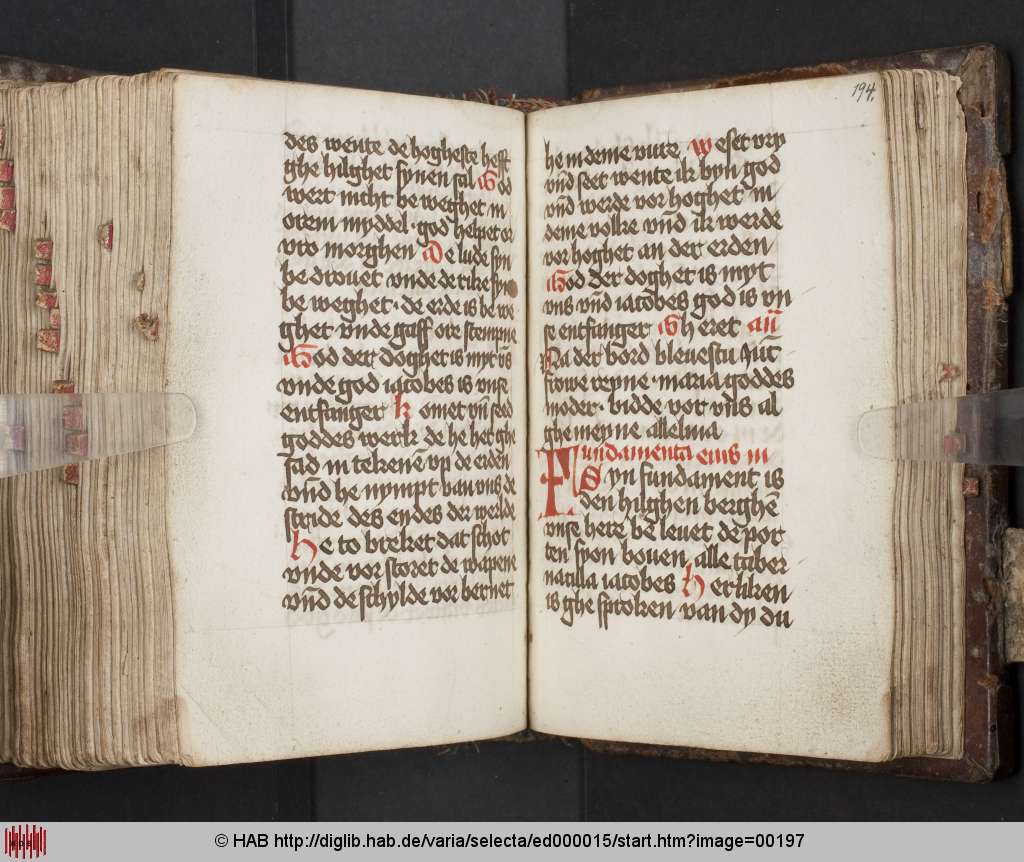 des wente de hogheste hefft
ghe hilghet synen sal God
wert nicht be weghet in
orem myddel · god helpet or
vro morghen De lude syn
be drouet unde de rike syn
be weghet · de erde is be we
ghet unde gaff ore stempne
God der doghet is myt vns
unde god iacobes is unse
entfanger komet vn̄ seed
goddes werk de he het ghe
sad in tekenē vp de erden
vn̄d he nympt van uns de
stride des endes der werlde
He to breket dat schot
unde vor storet de wapene
vn̄d de schylde vor bernet
194.
he in deme vure Weset vry
vn̄d seet wente ik byn god
vn̄d werde vor hoghet in
deme volke vn̄d ik werde
vor hoghet an der erden
God der doghet is myt
vns vn̄d iacobes god is vn
se entfanger Gh eret an̄
Na der bord bleuestu iūc
frowe reyne · maria goddes
moder · bidde vor vns al
ghe meyne alleluia
Fundamenta eius in
Syn fundament is
den hilghen berghē
unse here bē leuet de por
ten syon bouen alle taber
nacula iacobes herliken
is ghe sproken van dy du
© HAB http://diglib.hab.de/varia/selecta/ed000015/start.htm?image=00197